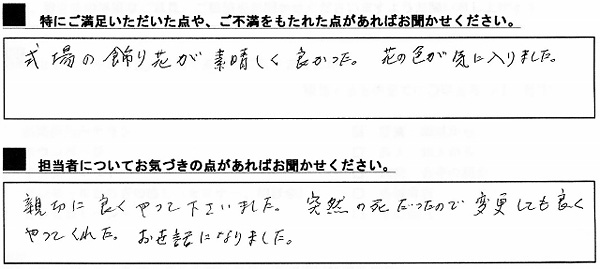 ■ 特にご満足いただいた点や、ご不満をもたれた点があればお聞かせください。
式場の飾り花が素晴しく良かった。花の色が気に入りました。
■ 担当者についてお気づきの点があればお聞かせください。
親切に良くやって下さいました。突然の死だったので変更しても良く
やってくれた。お世話になりました。